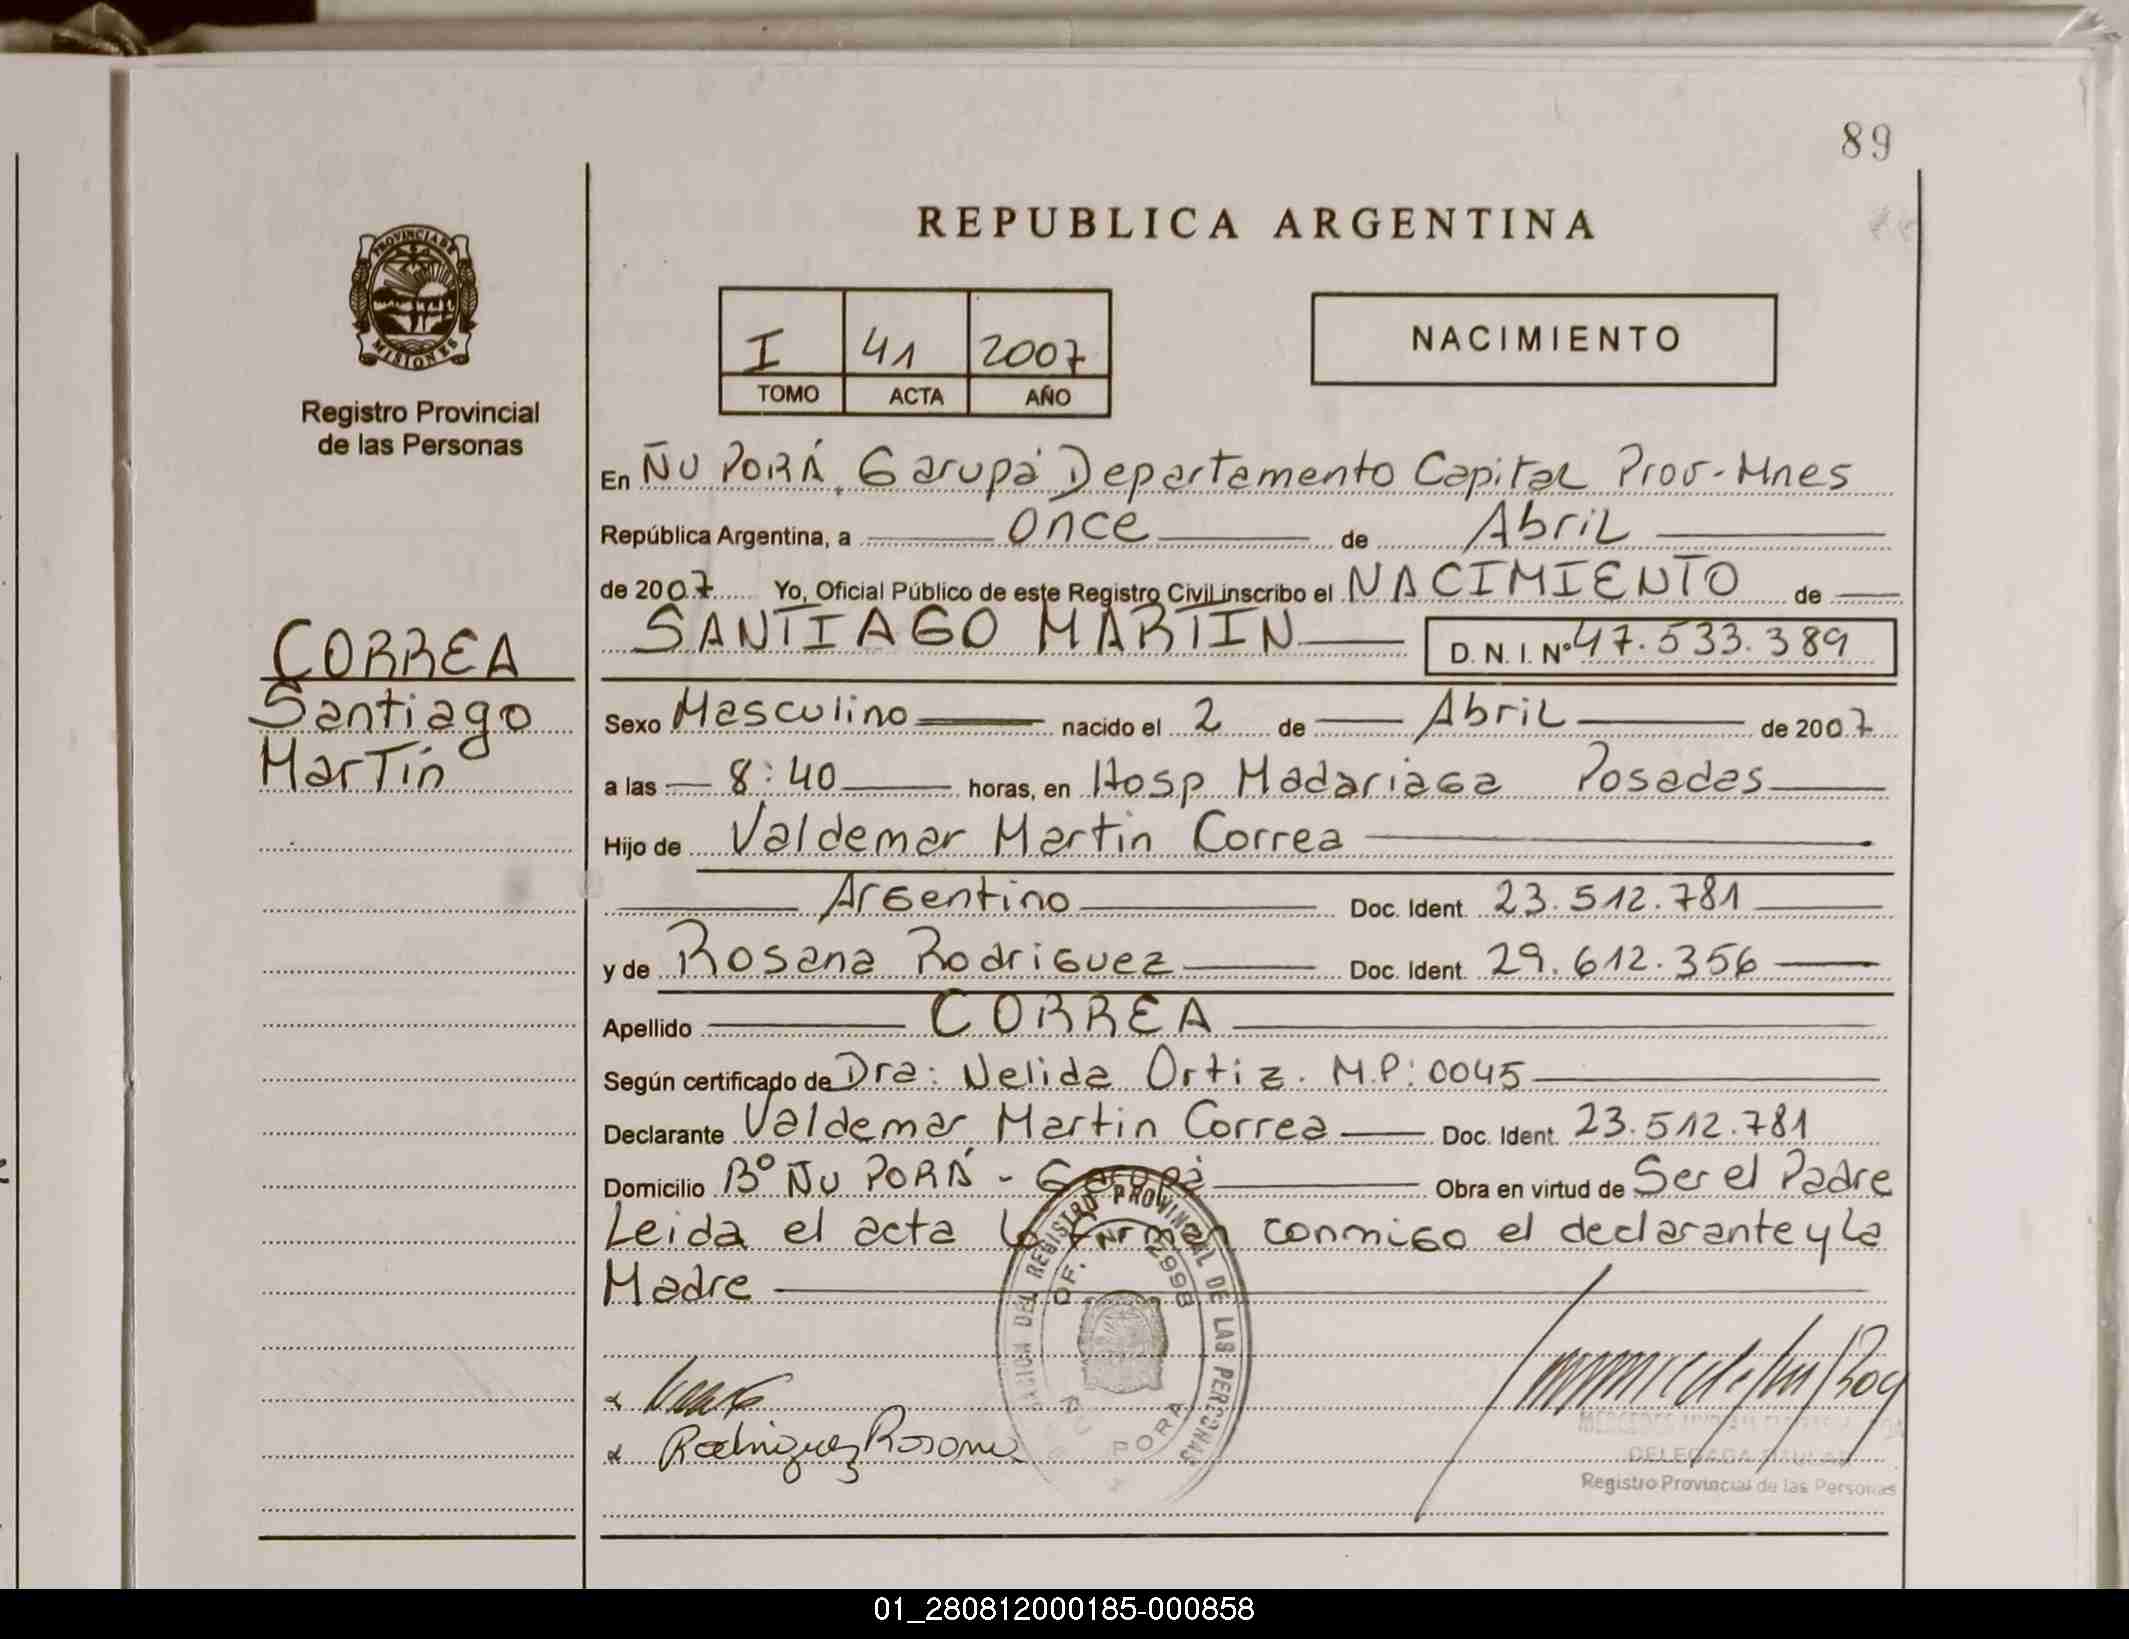 89
PROVINCIA DE
MISIONES
Registro Provincial
de las Personas
REPUBLICA ARGENTINA
I 41 2007
TOMO ACTA AÑO
NACIMIENTO
En ÑU PORÁ, Garupá Departamento Capital Prov-Mnes
República Argentina, a once de Abril
de 2007 Yo, Oficial Público de este Registro Civil inscribo el NACIMIENTO de
SANTIAGO MARTIN D. N. I. Nº 47.533.389
CORREA
Santiago
Martín
Sexo Masculino nacido el 2 de Abril de 2007
a las 8:40 horas, en Hosp Madariaga Posadas
Hijo de Valdemar Martin Correa
Argentino Doc. Ident. 23.512.781
y de Rosana Rodriguez Doc. Ident. 29.612.356
Apellido CORREA
Según certificado de Dra: Nelida Ortiz. M.P: 0045
Declarante Valdemar Martin Correa Doc. Ident. 23.512.781
Domicilio Bº ÑU PORÁ - Garupá Obra en virtud de Ser el Padre
Leida el acta la firman conmigo el declarante y la
Madre
REGISTRO PROVINCIAL DE LAS PERSONAS
OF. Nº 2998
ÑU PORA
Rodriguez Rosana
DELEGADA TITULAR
Registro Provincial de las Personas
01_280812000185-000858